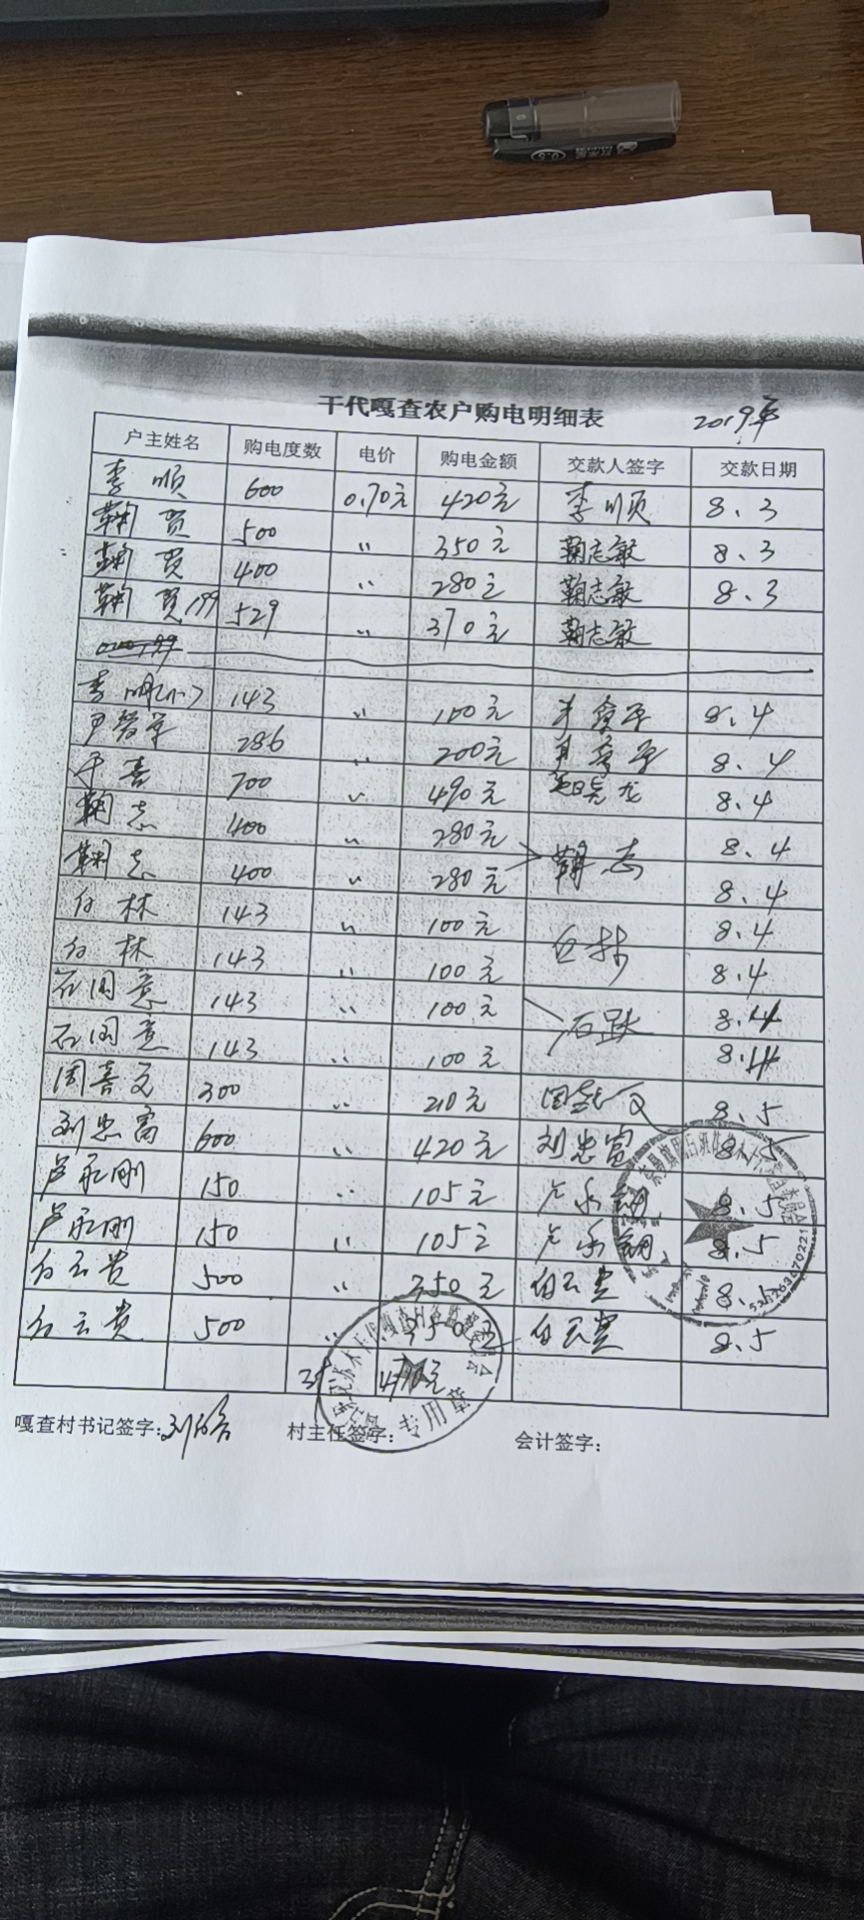 干代嘎查农户购电明细表 2019年
户主姓名 购电度数 电价 购电金额 交款人签字 交款日期
李顺 600 0.70元 420元 李顺 8.3
鞠贤 500 〃 350元 鞠志敏 8.3
鞠贤 400 〃 280元 鞠志敏 8.3
鞠贤199 529 〃 370元 鞠志敏
李 143 〃 100元 8.4
286 〃 200元 8.4
于喜 700 〃 490元 龙 8.4
鞠志 400 〃 280元 鞠志 8.4
鞠志 400 〃 280元 8.4
白林 143 〃 100元 白林 8.4
白林 143 〃 100元 8.4
石闰意 143 〃 100元 石 8.4
石闰意 143 〃 100元 8.4
周喜文 300 〃 210元 周喜文 8.5
刘忠富 600 〃 420元 刘忠富 8.5
卢永刚 150 〃 105元 卢永钢 8.5
卢永刚 150 〃 105元 卢永钢 8.5
白云贵 500 〃 350元 白云贵 8.5
白云贵 500 〃 350元 白云贵 8.5
嘎查村书记签字: 村主任签字: 会计签字:
专用章